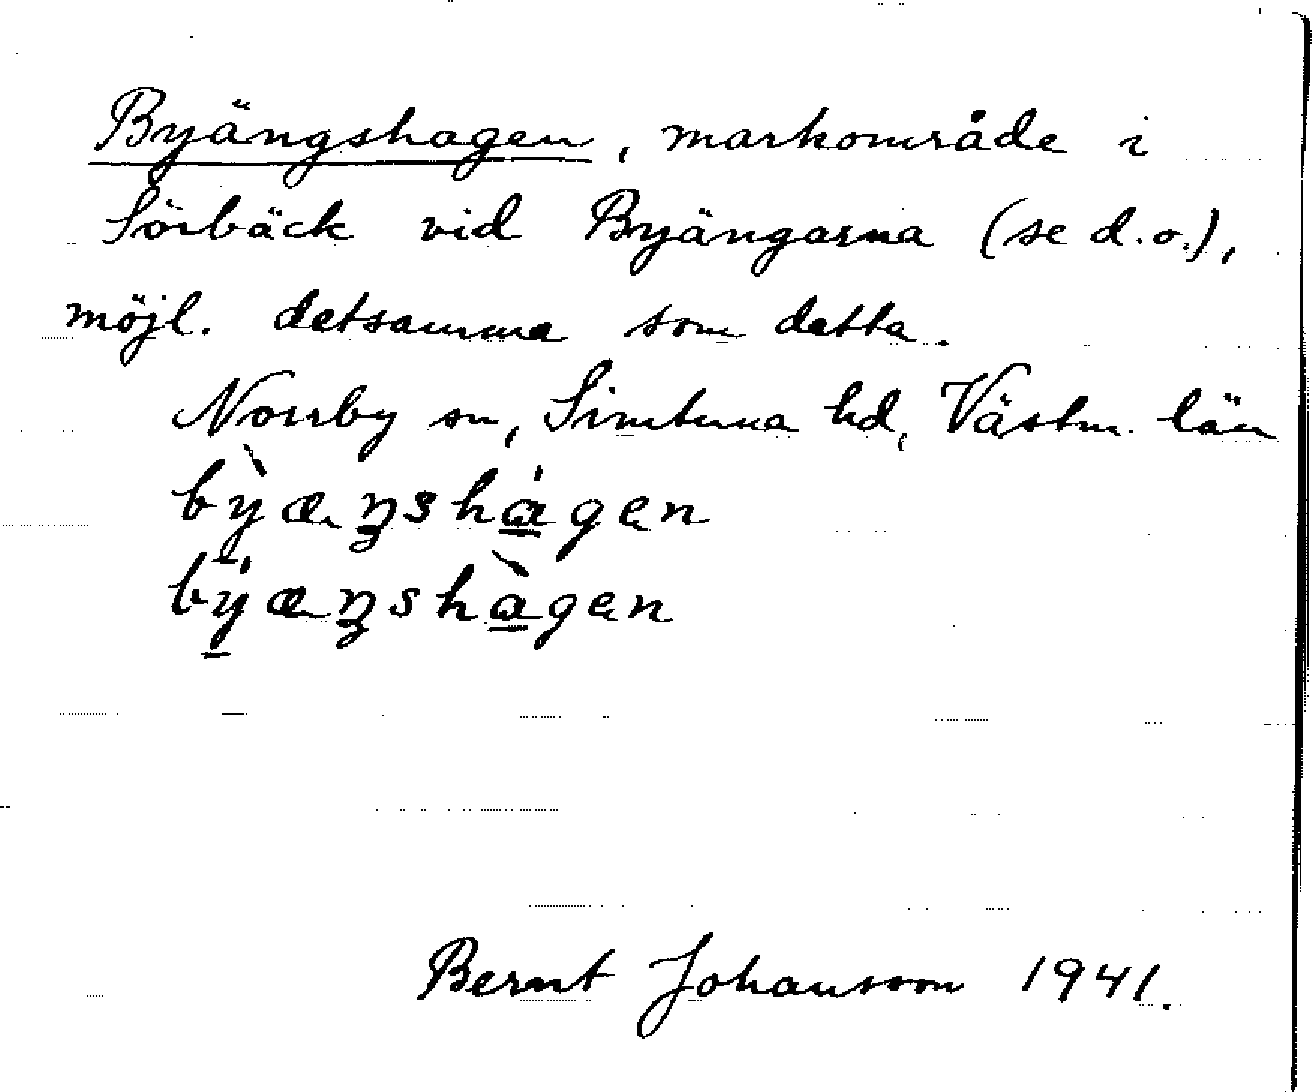 Byängshagen, markområde i
Sörbäck vid Byängarna (se d.o.),
möjl. detsamma som detta.
Norrby sn, Simtuna hd, Västm. län
bỳæŋshágen
býæŋshàgen
Bernt Johansson 1941.